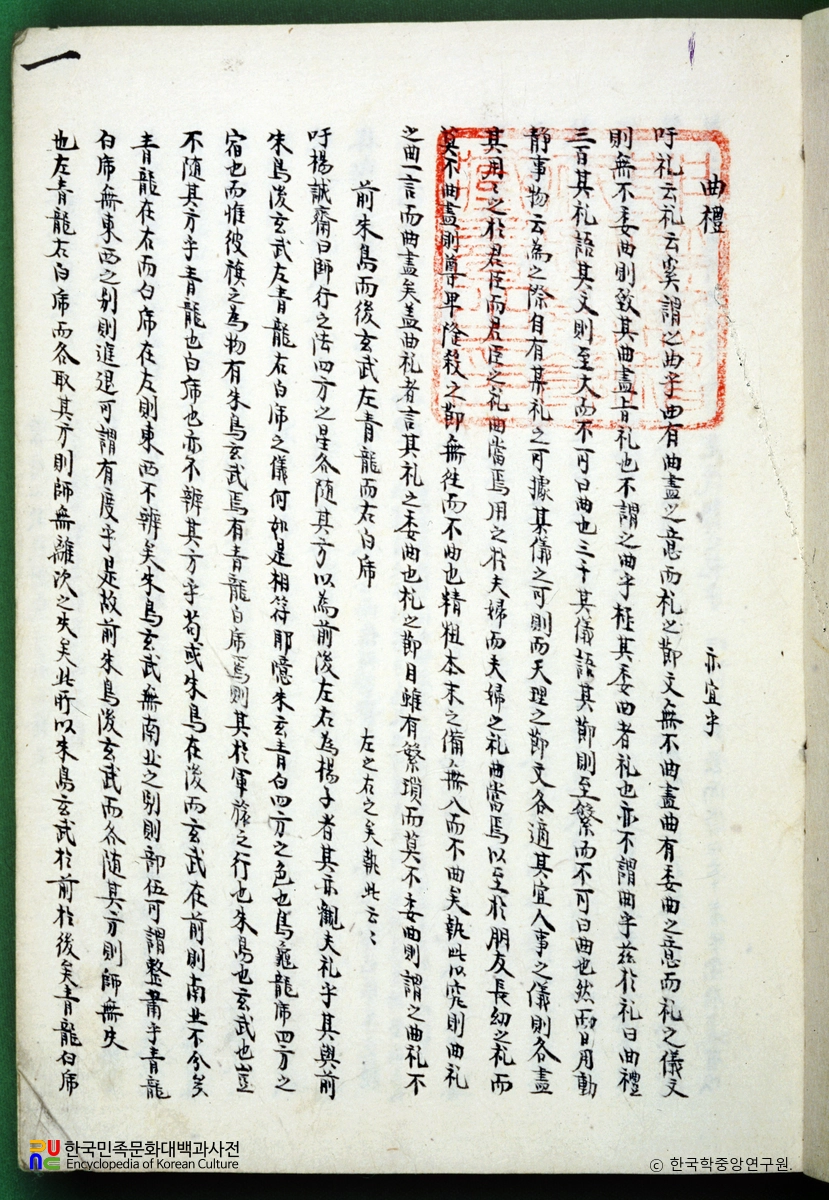 一
曲禮 亦宜乎
吁礼云礼云奚謂之曲乎曲有曲盡之意而礼之節文無不曲盡曲有委曲之意而礼之儀文
則無不委曲則致其曲盡者礼也不謂之曲乎極其委曲者礼也亦不謂曲乎玆於礼曰曲禮
三百其礼語其文則至大而不可曰曲也三千其儀語其節則至繁而不可曰曲也然而日用動
静事物云為之際自有某礼之可據某儀之可則而天理之節文各適其宜人事之儀則各盡
其用〻之於君臣而君臣之礼曲當焉用之於夫婦而夫婦之礼曲當焉以至於朋友長幼之礼而
莫不曲盡則尊卑隆殺之節無往而不曲也精粗本末之備無入而不曲矣執此以究則曲礼
之曲一言而曲盡矣盖曲礼者言其礼之委曲也礼之節目雖有繁瑣而莫不委曲則謂之曲礼不
前朱鳥而後玄武左青龍而右白席 左之右之矣執此云〻
吁楊誠齋曰師行之法四方之星各随其方以為前後左右為楊子者其亦觀夫礼乎其與前
朱鳥後玄武左青龍右白席之儀何如是相符耶噫朱玄青白四方之色也鳥龜龍席四方之
宿也而惟彼旗之為物有朱鳥玄武焉有青龍白席焉則其於軍旅之行也朱鳥也玄武也豈
不随其方乎青龍也白席也亦不辨其方乎苟或朱鳥在後而玄武在前則南北不分矣
青龍在右而白席在左則東西不辨矣朱鳥玄武無南北之别則部伍可謂整肅乎青龍
白席無東西之别則進退可謂有度乎是故前朱鳥後玄武而各随其方則師無失
也左青龍右白席而各取其方則師無離次之失矣此所以朱鳥玄武於前於後矣青龍白席
한국민족문화대백과사전
Encyclopedia of Korean Culture
© 한국학중앙연구원.